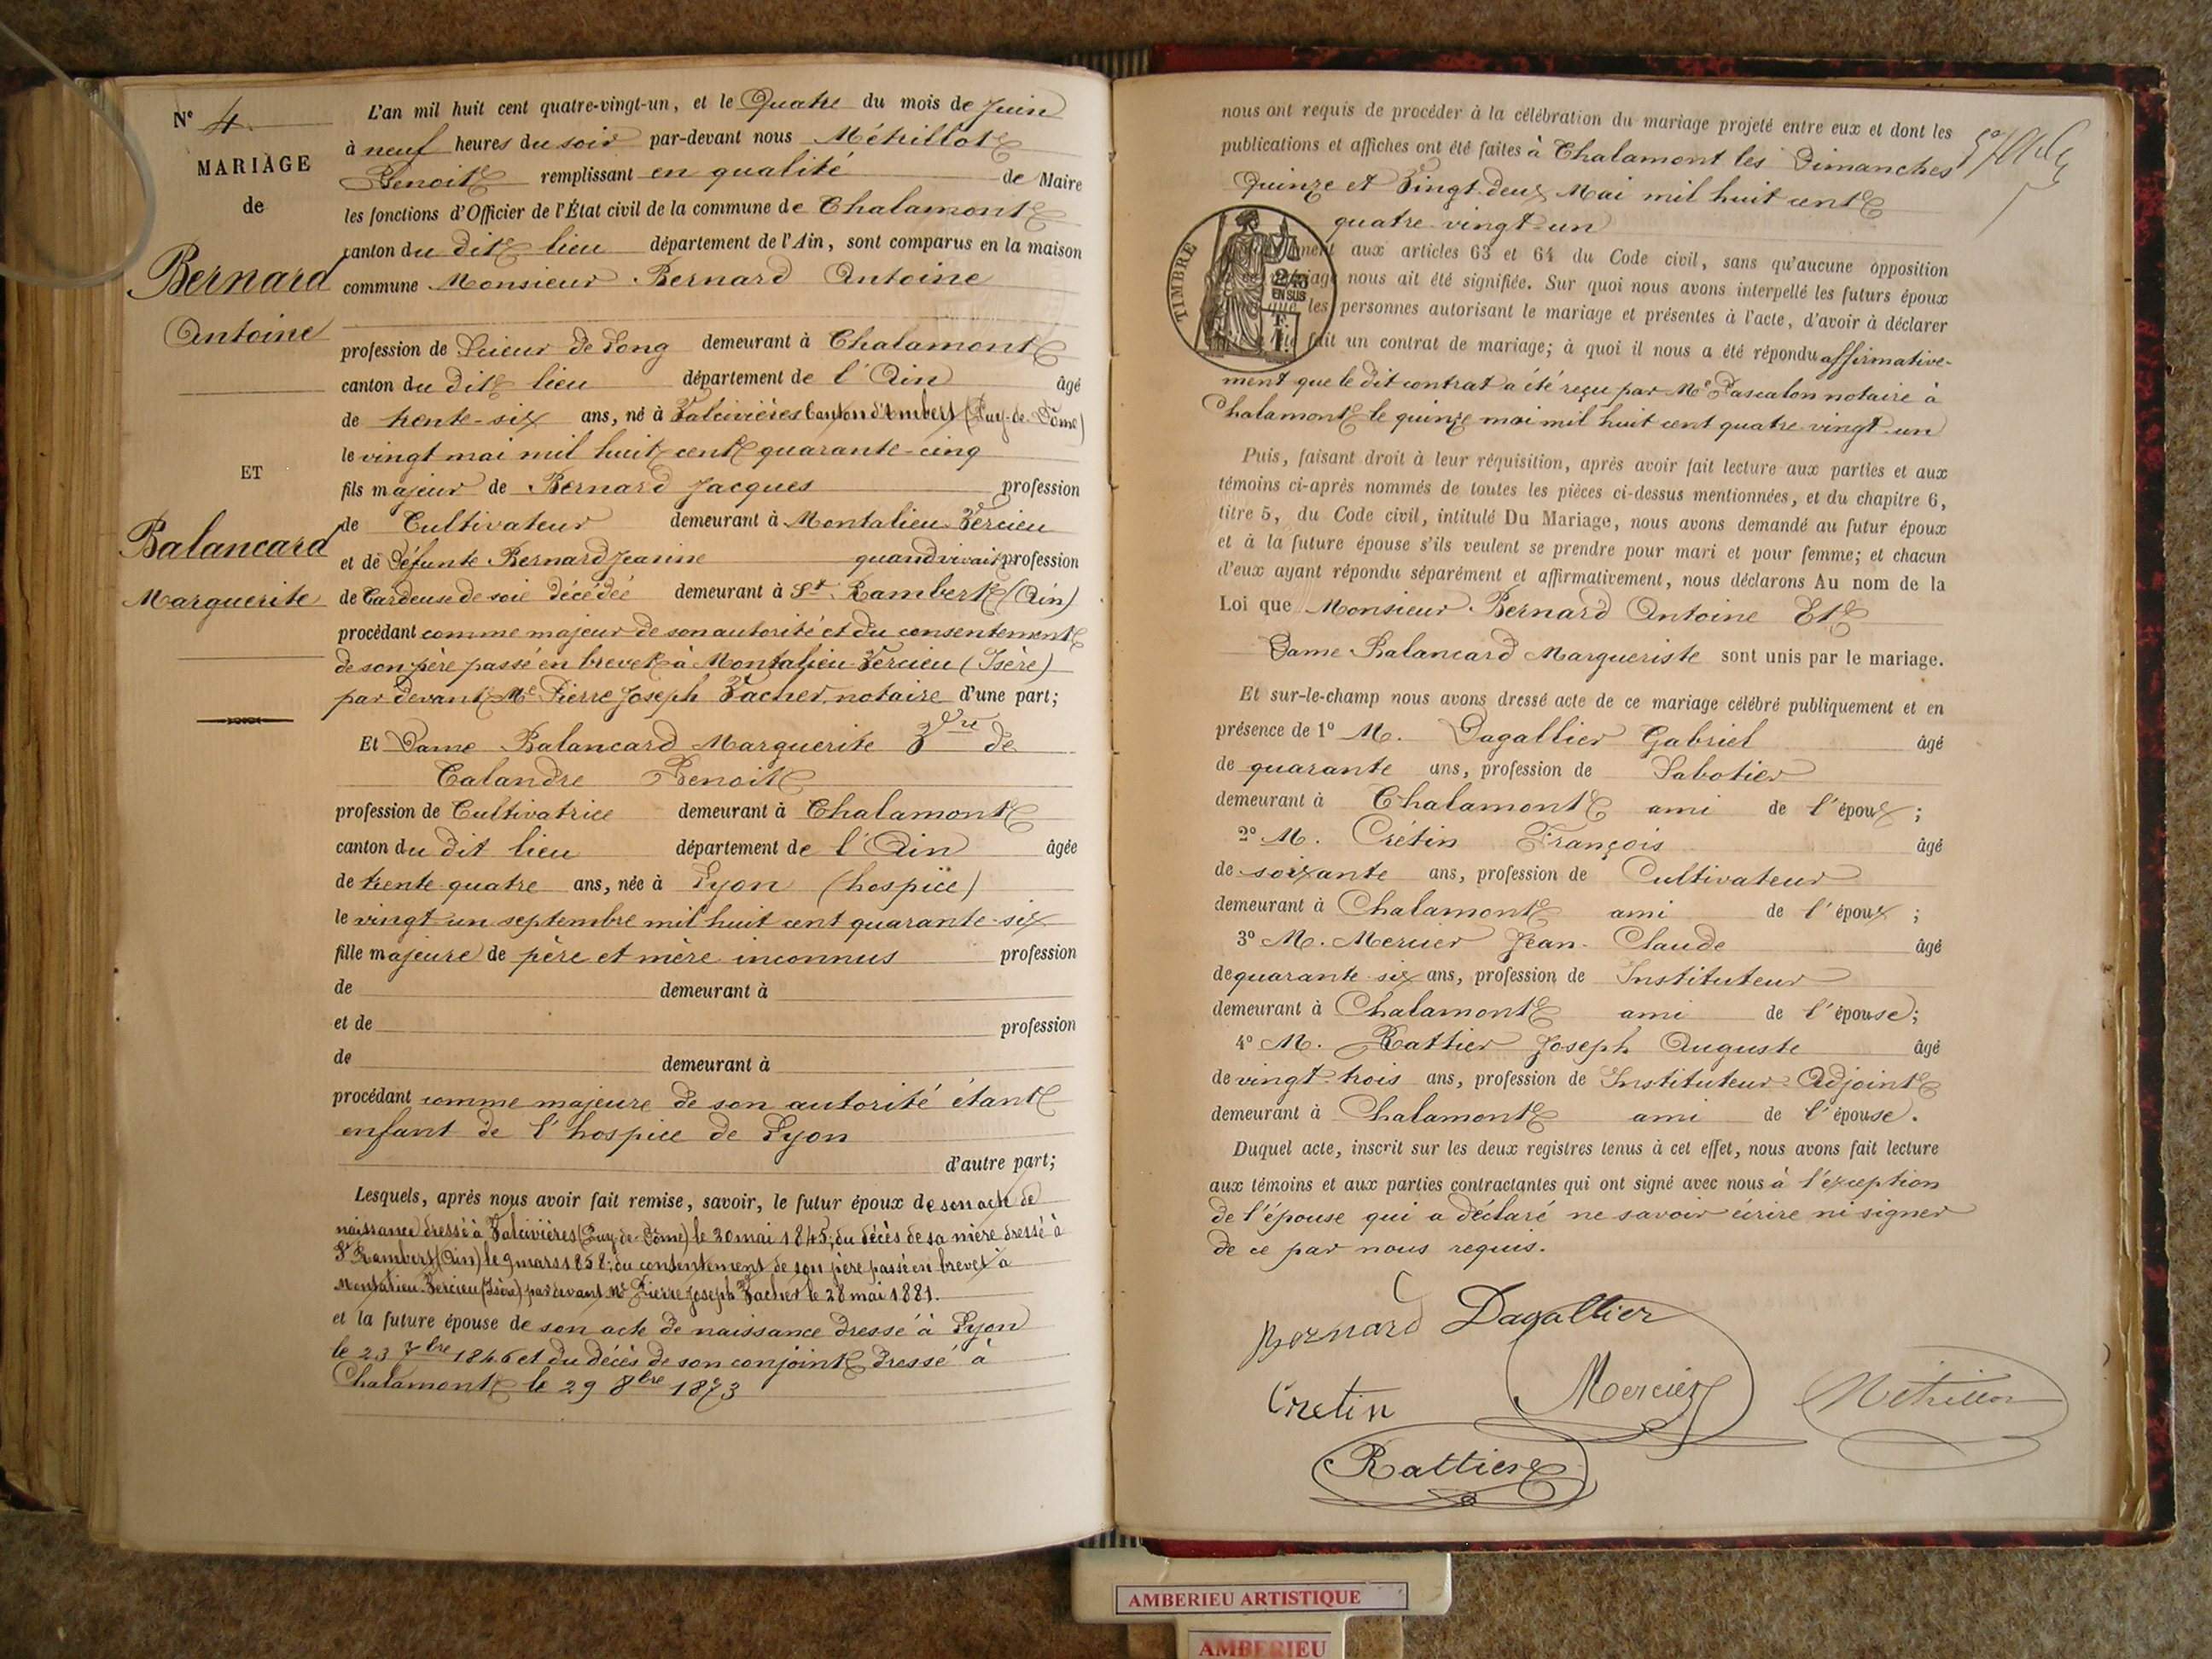 N° 4
MARIAGE
de
Bernard
Antoine
ET
Balancard
Marguerite
L'an mil huit cent quatre-vingt-un, et le Quatre du mois de Juin
à neuf heures du soir par-devant nous Méhillot
Benoit remplissant en qualité de Maire
les fonctions d'Officier de l'État civil de la commune de Chalamont
canton du dit lieu département de l'Ain, sont comparus en la maison
commune Monsieur Bernard Antoine
profession de Scieur de Long demeurant à Chalamont
canton du dit lieu département de l'Ain âgé
de trente-six ans, né à Valcivières Canton d'Ambert (Puy-de-Dôme)
le vingt mai mil huit cent quarante-cinq
fils majeur de Bernard Jacques profession
de Cultivateur demeurant à Montalieu-Vercieu
et de Défunte Bernard Jeanne quand vivait profession
de Cardeuse de soie décédée demeurant à St Rambert (Ain)
procédant comme majeur de son autorité et du consentement
de son père passé en brevet à Montalieu-Vercieu (Isère)
par devant Me Pierre Joseph Vacher, notaire d'une part;
Et Dame Balancard Marguerite Vve de
Calandre Benoit
profession de Cultivatrice demeurant à Chalamont
canton du dit lieu département de l'Ain âgée
de trente quatre ans, née à Lyon (hospice)
le vingt un septembre mil huit cent quarante-six
fille majeure de père et mère inconnus profession
de demeurant à
et de profession
de demeurant à
procédant comme majeure de son autorité étant
enfant de l'hospice de Lyon
d'autre part;
Lesquels, après nous avoir fait remise, savoir, le futur époux de son acte de
naissance dressé à Valcivières (Puy-de-Dôme) le 20 mai 1845; du décès de sa mère dressé à
St Rambert (Ain) le 9 mars 1858; du consentement de son père passé en brevet à
Montalieu-Vercieu (Isère) par devant Me Pierre Joseph Vacher le 28 mai 1881.
et la future épouse de son acte de naissance dressé à Lyon
le 23 7bre 1846 et du décès de son conjoint dressé à
Chalamont le 29 8bre 1873
nous ont requis de procéder à la célébration du mariage projeté entre eux et dont les
publications et affiches ont été faites à Chalamont les Dimanches
Quinze et Vingt-deux Mai mil huit cent
quatre-vingt-un
aux articles 63 et 64 du Code civil, sans qu'aucune opposition
nous ait été signifiée. Sur quoi nous avons interpellé les futurs époux
que les personnes autorisant le mariage et présentes à l'acte, d'avoir à déclarer
fait un contrat de mariage; à quoi il nous a été répondu affirmative-
ment que le dit contrat a été reçu par Me Pascalon notaire à
Chalamont le quinze mai mil huit cent quatre vingt-un
TIMBRE
2/10
EN SUS
Puis, faisant droit à leur réquisition, après avoir fait lecture aux parties et aux
témoins ci-après nommés de toutes les pièces ci-dessus mentionnées, et du chapitre 6,
titre 5, du Code civil, intitulé Du Mariage, nous avons demandé au futur époux
et à la future épouse s'ils veulent se prendre pour mari et pour femme; et chacun
d'eux ayant répondu séparément et affirmativement, nous déclarons Au nom de la
Loi que Monsieur Bernard Antoine Et
Dame Balancard Margueriste sont unis par le mariage.
Et sur-le-champ nous avons dressé acte de ce mariage célébré publiquement et en
présence de 1° M. Dagallier Gabriel âgé
de quarante ans, profession de Sabotier
demeurant à Chalamont ami de l'époux;
2° M. Crétin François âgé
de soixante ans, profession de Cultivateur
demeurant à Chalamont ami de l'époux;
3° M. Mercier Jean-Claude âgé
de quarante six ans, profession de Instituteur
demeurant à Chalamont ami de l'épouse;
4° M. Rattier Joseph Auguste âgé
de vingt-trois ans, profession de Instituteur-Adjoint
demeurant à Chalamont ami de l'épouse.
Duquel acte, inscrit sur les deux registres tenus à cet effet, nous avons fait lecture
aux témoins et aux parties contractantes qui ont signé avec nous à l'exception
de l'épouse qui a déclaré ne savoir écrire ni signer
de ce par nous requis.
Bernard Dagallier
Cretin Mercier Méhillot
Rattier
AMBERIEU ARTISTIQUE
AMBERIEU